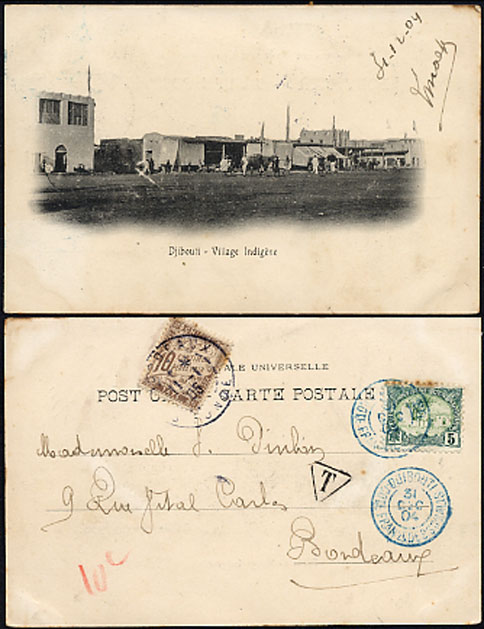 31-12-04
Djibouti - Village Indigène
ALE UNIVERSELLE
POST CARTE POSTALE
10
5
Mademoiselle J.
9 Rue Vital Carles
T
DJIBOUTI
31
DEC
04
Bordeaux
10c